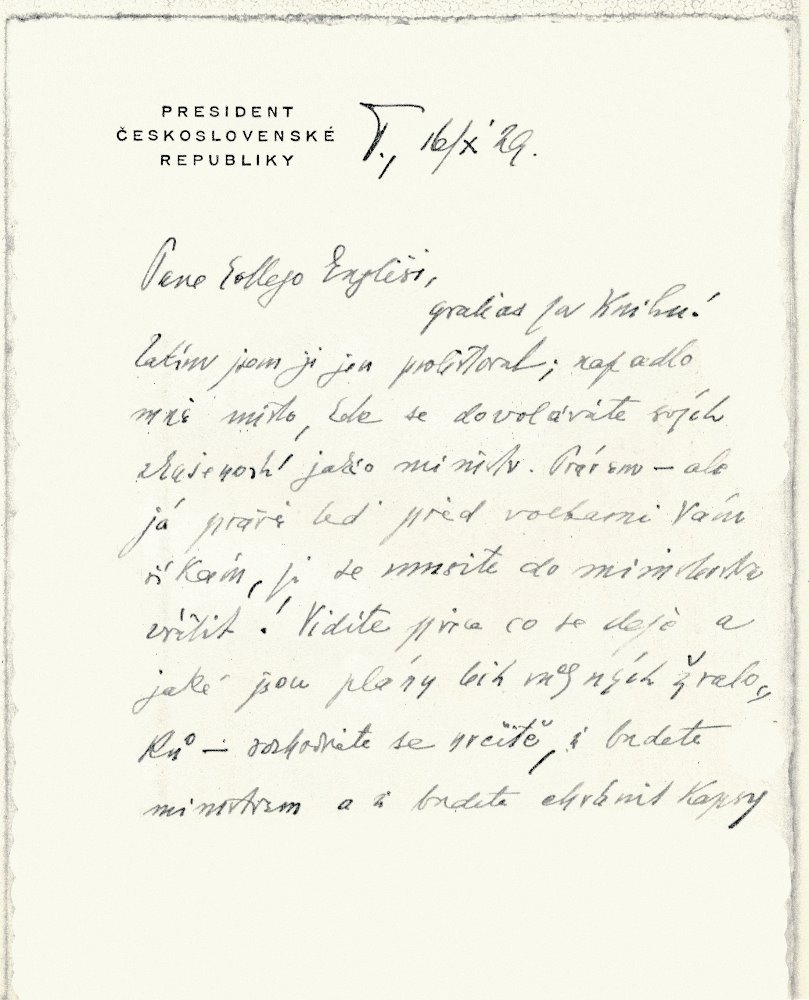 PRESIDENT
ČESKOSLOVENSKÉ
REPUBLIKY
T., 16/X 29.
Pane kollego Engliši,
gratias za knihu!
Zatím jsem ji jen prolistoval; napadlo
mně místo, kde se dovoláváte svých
zkušeností jako ministr. Právem – ale
já právě teď před volbami Vám
říkám, že se musíte do ministerstva
vrátit! Vidíte přece co se děje a
jaké jsou plány těch různých žralo„
ků – rozhodněte se určitě, že budete
ministrem a že budete chránit kapsy